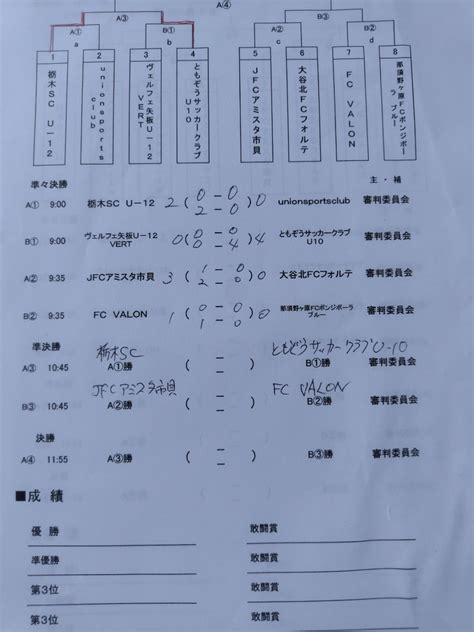 A④
A③ B③
A① B① A② B②
a b c d
1 2 3 4 5 6 7 8
栃木SC U-12
unionsports club
ヴェルフェ矢板U-12 VERT
ともぞうサッカークラブ U10
JFCアミスタ市貝
大谷北FCフォルテ
FC VALON
那須野ヶ原FCボンジボーラ ブルー
準々決勝 主・補
A① 9:00 栃木SC U-12 2 ( 0 - 0 ) 0 unionsportsclub 審判委員会
2 - 0
B① 9:00 ヴェルフェ矢板U-12 VERT 0 ( 0 - 0 ) 4 ともぞうサッカークラブ U10 審判委員会
0 - 4
A② 9:35 JFCアミスタ市貝 3 ( 1 - 0 ) 0 大谷北FCフォルテ 審判委員会
2 - 0
B② 9:35 FC VALON 1 ( 0 - 0 ) 0 那須野ヶ原FCボンジボーラ ブルー 審判委員会
1 - 0
準決勝 栃木SC ともぞうサッカークラブU-10
A③ 10:45 A①勝 ( - - ) B①勝 審判委員会
JFCアミスタ市貝 FC VALON
B③ 10:45 A②勝 ( - - ) B②勝 審判委員会
決勝
A④ 11:55 A③勝 ( - - ) B③勝 審判委員会
■成績
優勝 敢闘賞
準優勝 敢闘賞
第3位 敢闘賞
第3位 敢闘賞